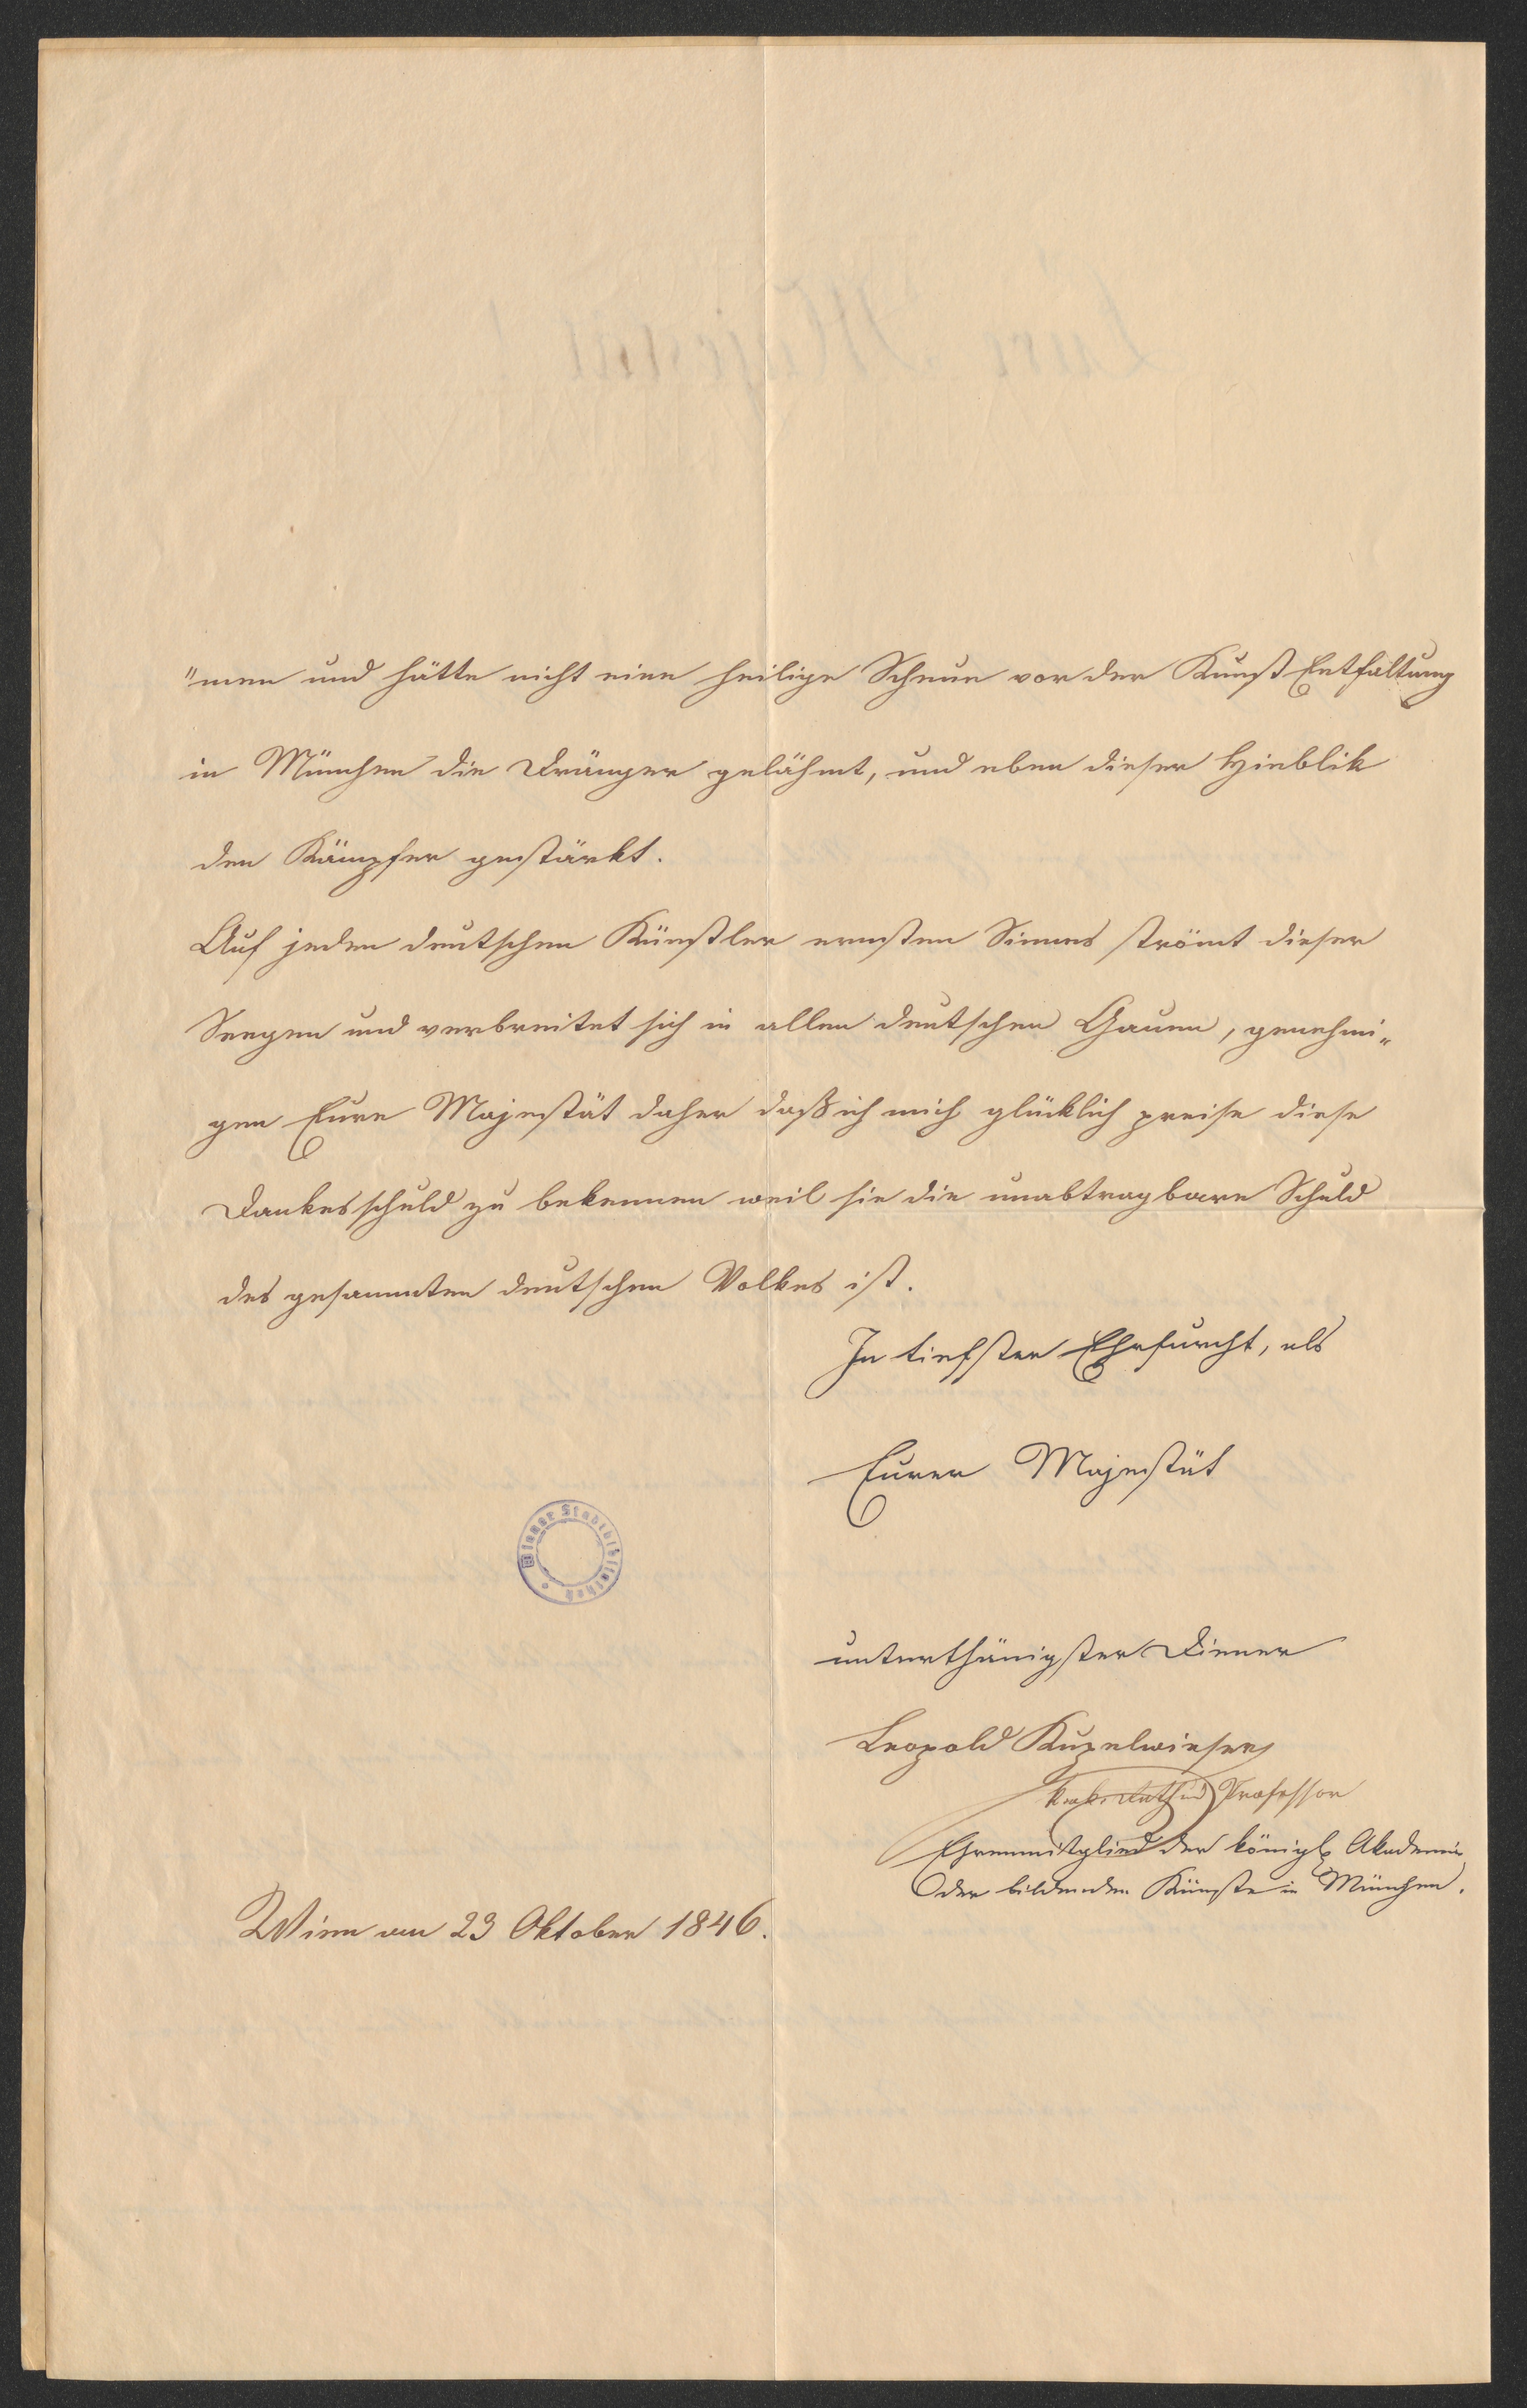 "men und hätte nicht eine heilige Scheue vor der Kunst Entfaltung
in München die Dränger gelähmt, und eben dieser Hinblik
den Kämpfer gestärkt.
Auf jeden deutschen Künstler ernsten Sinnes strömt dieser
Seegen und verbreitet sich in allen deutschen Gauen, genehmi„
gen Eure Majestät daher daß ich mich glücklich preise diese
Dankesschuld zu bekennen weil sie die unabtragbare Schuld
des gesammten deutschen Volkes ist.
In tiefster Ehrfurcht, als
Eurer Majestät
Wiener Stadtbibliothek
unterthänigster Diener
Leopold Kupelwieser
k. k. Rath und Professor
Ehrenmitglied der königl Akademie
der bildenden Künste in München.
Wien am 23 Oktober 1846.